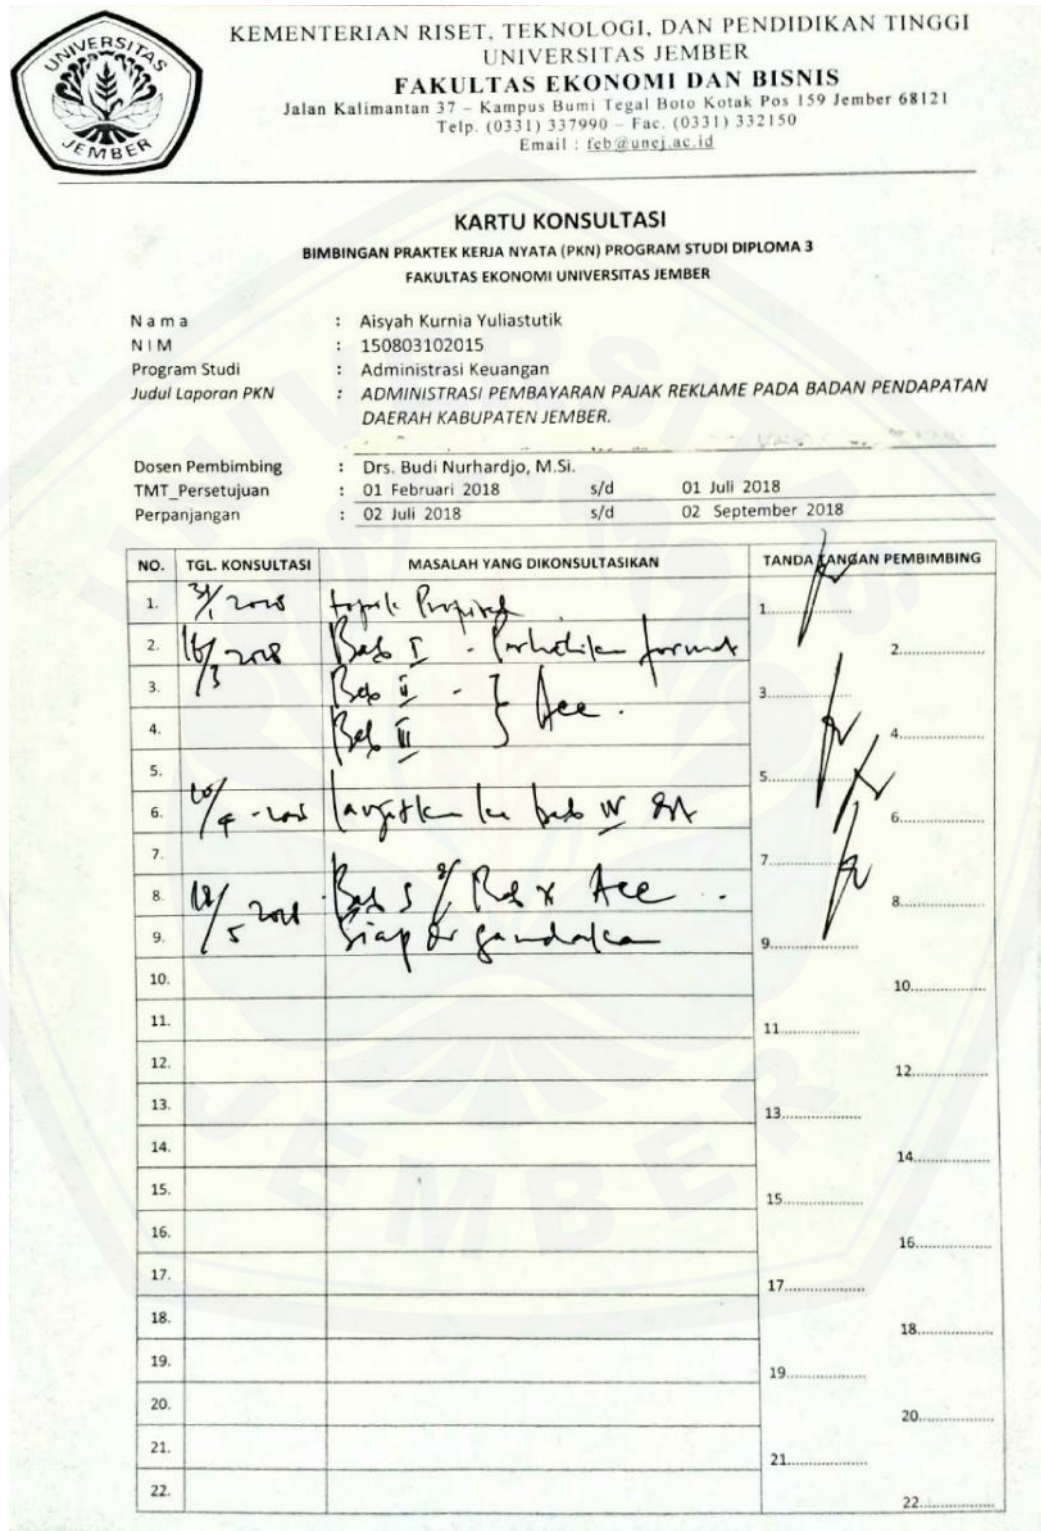 UNIVERSITAS
JEMBER
KEMENTERIAN RISET, TEKNOLOGI, DAN PENDIDIKAN TINGGI
UNIVERSITAS JEMBER
FAKULTAS EKONOMI DAN BISNIS
Jalan Kalimantan 37 – Kampus Bumi Tegal Boto Kotak Pos 159 Jember 68121
Telp. (0331) 337990 – Fac. (0331) 332150
Email : feb@unej.ac.id
KARTU KONSULTASI
BIMBINGAN PRAKTEK KERJA NYATA (PKN) PROGRAM STUDI DIPLOMA 3
FAKULTAS EKONOMI UNIVERSITAS JEMBER
N a m a : Aisyah Kurnia Yuliastutik
N I M : 150803102015
Program Studi : Administrasi Keuangan
Judul Laporan PKN : ADMINISTRASI PEMBAYARAN PAJAK REKLAME PADA BADAN PENDAPATAN
DAERAH KABUPATEN JEMBER.
Dosen Pembimbing : Drs. Budi Nurhardjo, M.Si.
TMT_Persetujuan : 01 Februari 2018 s/d 01 Juli 2018
Perpanjangan : 02 Juli 2018 s/d 02 September 2018
NO. TGL. KONSULTASI MASALAH YANG DIKONSULTASIKAN TANDA TANGAN PEMBIMBING
1. 2018 1.....................
2. 16/3 2018 Bab I - Perhatikan format 2.....................
3. Bab II - } Acc. 3.....................
4. Bab III 4.....................
5. 5.....................
6. lanjutkan ke bab IV 6.....................
7. 7.....................
8. 18/5 2018 Bab Acc. 8.....................
9. Siap di gandakan 9.....................
10. 10.....................
11. 11.....................
12. 12.....................
13. 13.....................
14. 14.....................
15. 15.....................
16. 16.....................
17. 17.....................
18. 18.....................
19. 19.....................
20. 20.....................
21. 21.....................
22. 22.....................